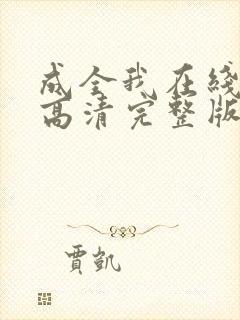 成全我在线
高清完整版
贾凯